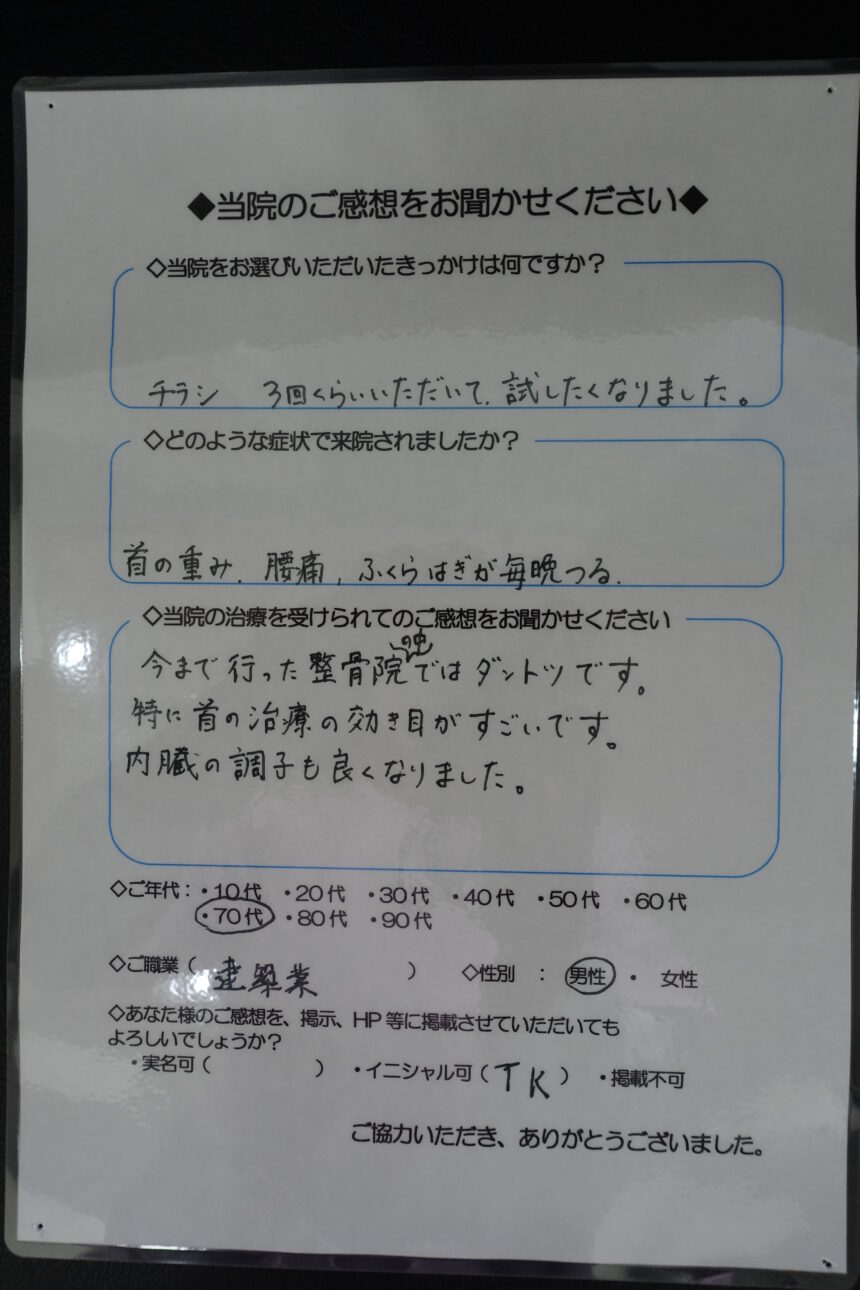 ◆当院のご感想をお聞かせください◆
◇当院をお選びいただいたきっかけは何ですか？
チラシ 3回くらいいただいて、試したくなりました。
◇どのような症状で来院されましたか？
首の重み、腰痛、ふくらはぎが毎晩つる。
◇当院の治療を受けられてのご感想をお聞かせください
今まで行った整骨院の中ではダントツです。
特に首の治療の効き目がすごいです。
内臓の調子も良くなりました。
◇ご年代：・10代 ・20代 ・30代 ・40代 ・50代 ・60代
・70代 ・80代 ・90代
◇ご職業（ 建築業 ） ◇性別 ： 男性 ・ 女性
◇あなた様のご感想を、掲示、HP等に掲載させていただいても
よろしいでしょうか？
・実名可（ ） ・イニシャル可（TK） ・掲載不可
ご協力いただき、ありがとうございました。